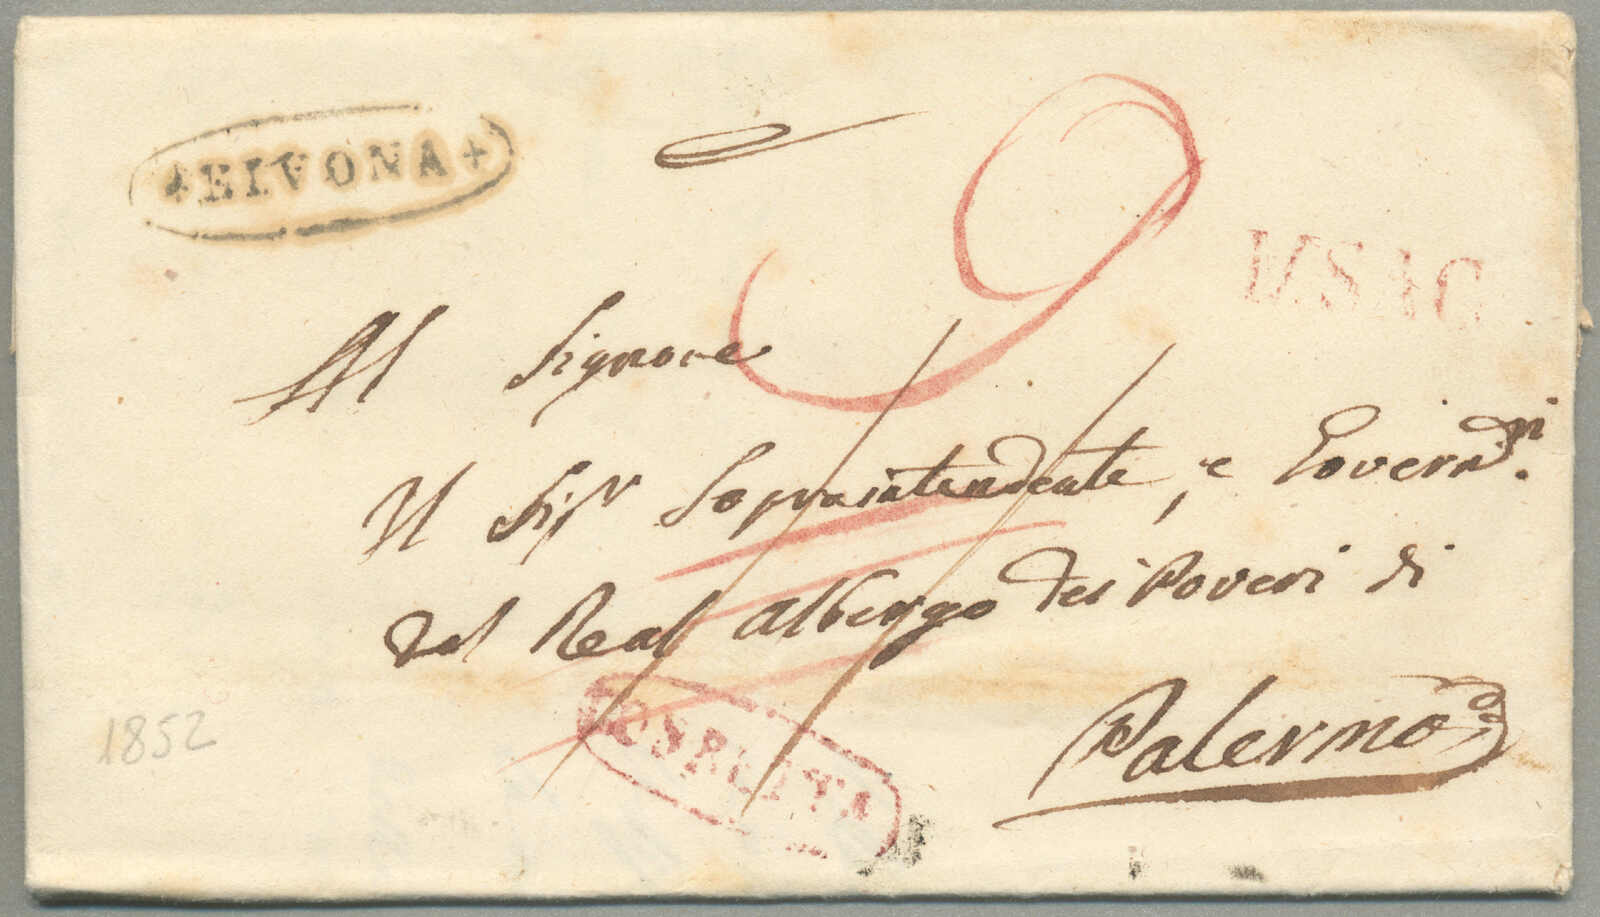 +BIVONA+
9
Al Signore
Il Sigr Soprintendente, e Governri
del Real Albergo dei Poveri di
Palermo
1852